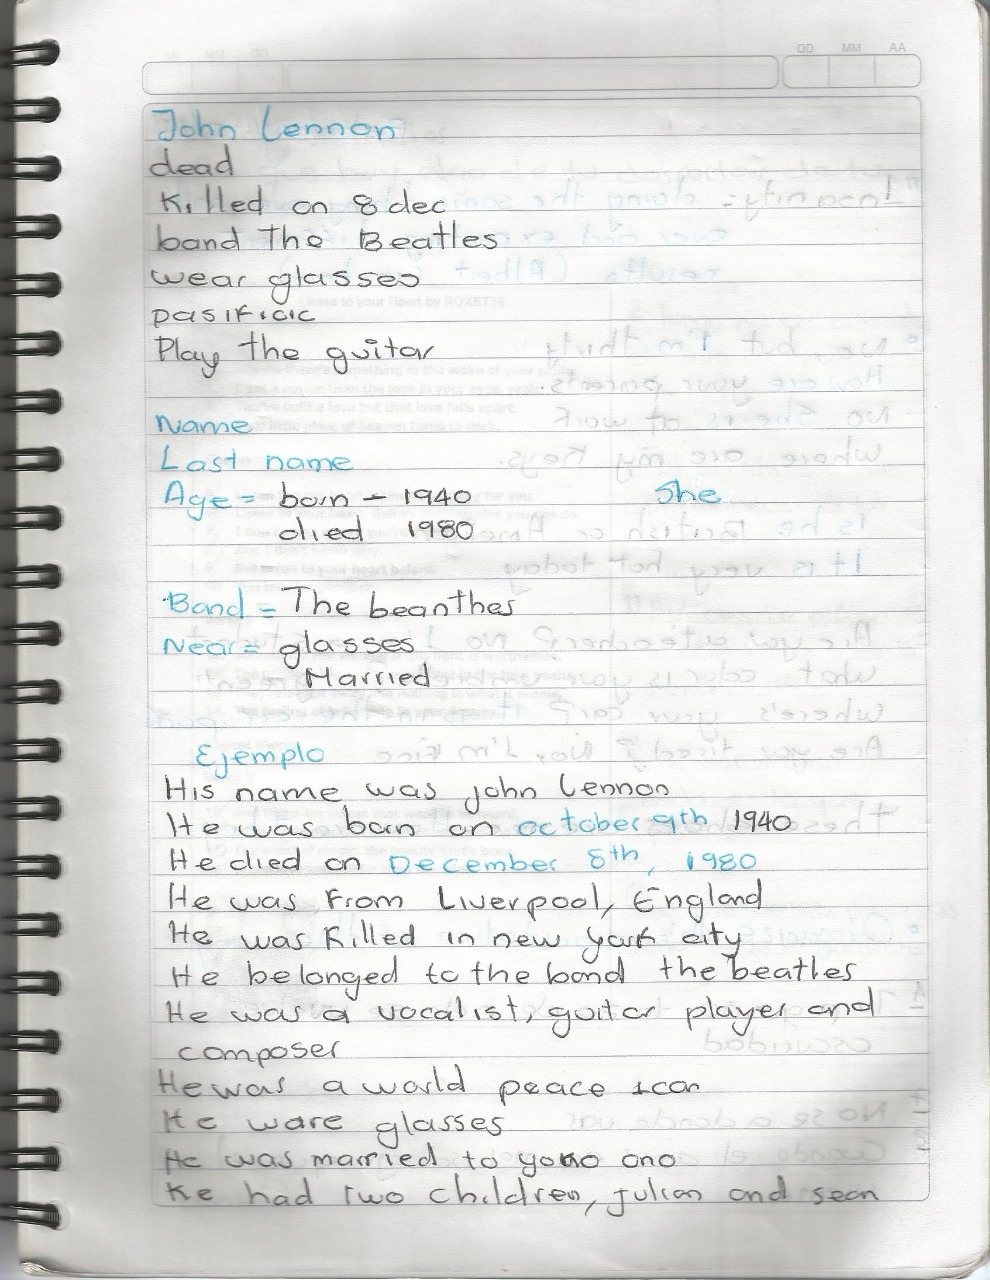 DD MM AA
John Lennon
dead
Killed on 8 dec
band The Beatles
wear glasses
pasificic
Play the guitar
Name
Last name
Age = born - 1940 She
died 1980
Band = The beanthes
Near = glasses
Married
Ejemplo
His name was john Lennon
He was born on october 9th 1940
He died on December 8th, 1980
He was From Liverpool, England
He was Killed in new york city
He belonged to the band the beatles
He was a vocalist, guitar player and
composer
He was a world peace icon
He ware glasses
He was married to yoko ono
He had two children, julian and sean